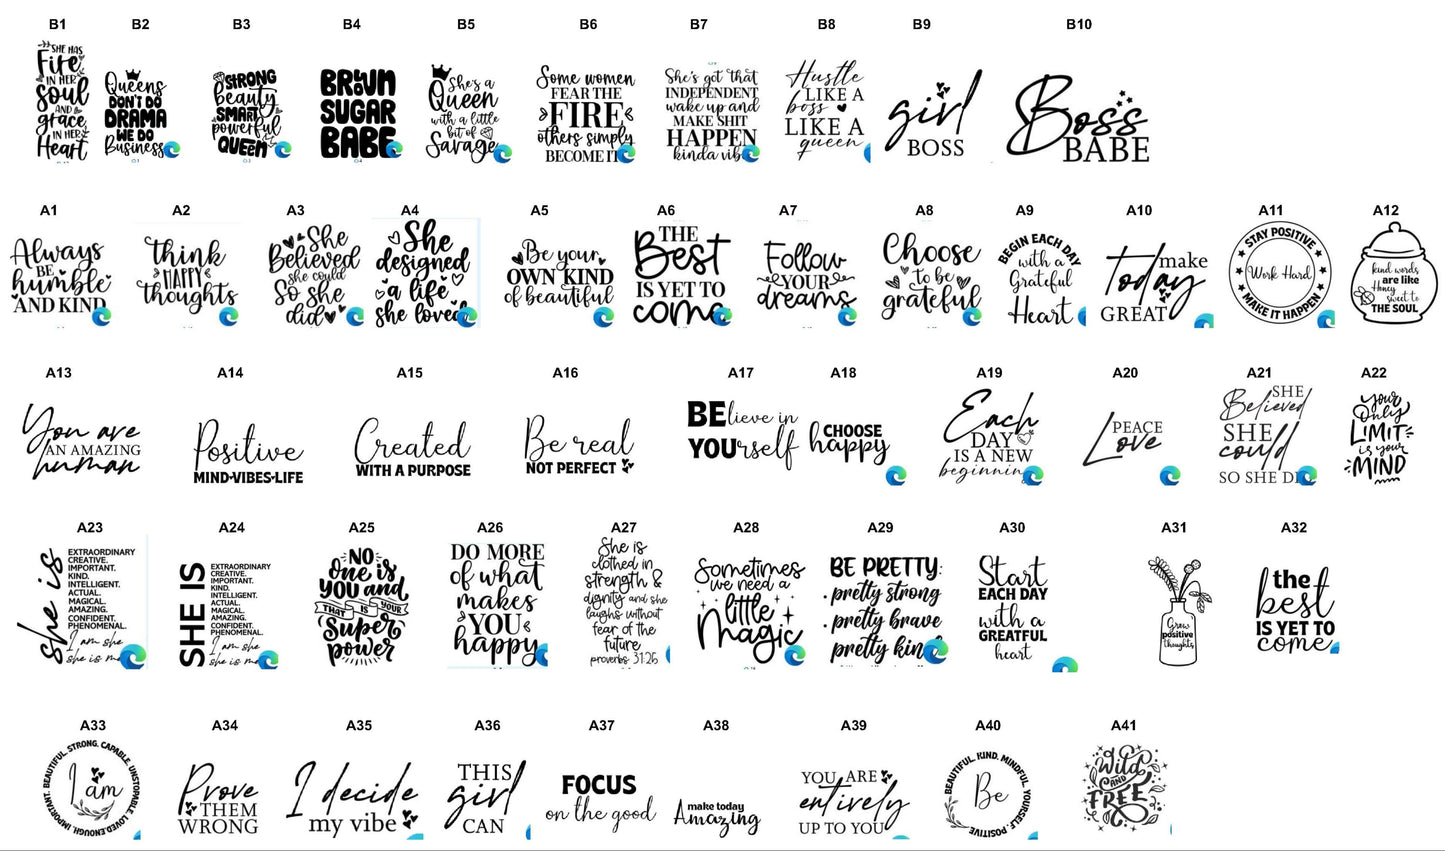 B1 B2 B3 B4 B5 B6 B7 B8 B9 B10
SHE HAS
Fire
IN HER
Soul
AND
grace
IN HER
Heart
Queens
DON'T DO
DRAMA
WE DO
Business
STRONG
beauty
SMART
powerful
QUEEN
BROWN
SUGAR
BABE
She's a
Queen
with a little
bit of
Savage
Some women
FEAR THE
FIRE
others simply
BECOME IT
She's got that
INDEPENDENT
wake up and
MAKE SHIT
HAPPEN
kinda vib
Hustle
LIKE A
boss
LIKE A
queen
girl
BOSS
Boss
BABE
A1 A2 A3 A4 A5 A6 A7 A8 A9 A10 A11 A12
Always
BE
humble
AND KIND
think
HAPPY
thoughts
She
Believed
she could
So she
did
She
designed
a life
she loved
Be your
OWN KIND
of beautiful
THE
Best
IS YET TO
come
Follow
YOUR
dreams
Choose
to be
grateful
BEGIN EACH DAY
with a
Grateful
Heart
make
Today
GREAT
STAY POSITIVE
Work Hard
MAKE IT HAPPEN
kind words
are like
Honey
sweet to
THE SOUL
A13 A14 A15 A16 A17 A18 A19 A20 A21 A22
You are
AN AMAZING
human
Positive
MIND•VIBES•LIFE
Created
WITH A PURPOSE
Be real
NOT PERFECT
BElieve in
YOUrself
CHOOSE
happy
Each
DAY
IS A NEW
beginning
PEACE
Love
SHE
Believed
SHE
could
SO SHE DI
your
Only
LIMIT
is your
MIND
A23 A24 A25 A26 A27 A28 A29 A30 A31 A32
she is
EXTRAORDINARY
CREATIVE.
IMPORTANT.
KIND.
INTELLIGENT.
ACTUAL.
MAGICAL.
AMAZING.
CONFIDENT.
PHENOMENAL.
I am she
she is m
SHE IS
EXTRAORDINARY
CREATIVE.
IMPORTANT.
KIND.
INTELLIGENT.
ACTUAL.
MAGICAL.
AMAZING.
CONFIDENT.
PHENOMENAL.
I am she
she is m
NO
one is
YOU and
THAT IS YOUR
Super
power
DO MORE
of what
makes
YOU
happy
She is
clothed in
strength &
dignity and she
laughs without
fear of the
future
proverbs 31:26
Sometimes
we need a
little
Magic
BE PRETTY:
• pretty strong
• pretty brave
pretty kind
Start
EACH DAY
with a
GREATFUL
heart
Grow
positive
thoughts
the
best
IS YET TO
come
A33 A34 A35 A36 A37 A38 A39 A40 A41
BEAUTIFUL. STRONG. CAPABLE. UNSTOPABLE. LOVED. ENOUGH. IMPORTANT.
I am
Prove
THEM
WRONG
I decide
my vibe
THIS
girl
CAN
FOCUS
on the good
make today
Amazing
YOU ARE
entirely
UP TO YOU
BEAUTIFUL. KIND. MINDFUL. YOURSELF. POSITIVE
Be
Wild
AND
FREE